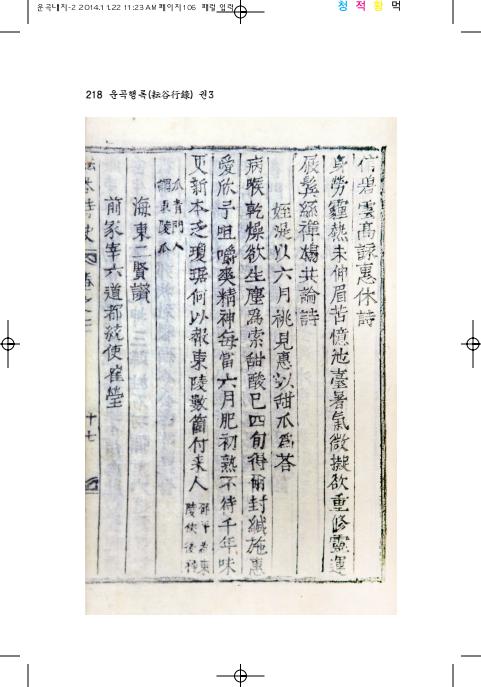 운곡내지-2 2014.11.22 11:23 AM 페이지106 패컬 입력
청 적 황 먹
218 운곡행록(耘谷行錄) 권3
信碧雲高詠惠休詩
身勞龗熱未伸眉苦憶池臺暑氣微擬欲重修靈運
屐鬓絲禪榻共論詩
姪湜以六月桃見惠以甜瓜爲荅
病喉乾燥欲生塵爲索甜酸已四旬得爾封緘施惠
愛欣于咀嚼爽精神每當六月肥初熟不待千年味
更新本乏瓊琚何以報東陵數箇付来人 邵平爲東陵侯後種
瓜靑門人謂東陵瓜
海東二賢讃
前冡宰六道都統使崔瑩
十七